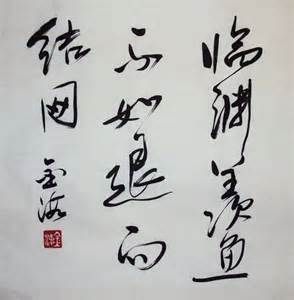 临渊羡鱼
不如退而
结网
金海